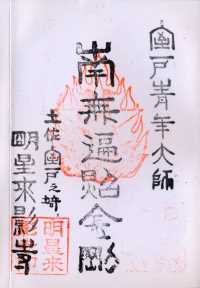 室戸青年大師
南無遍照金剛
土佐室戸之埼
明星来影寺